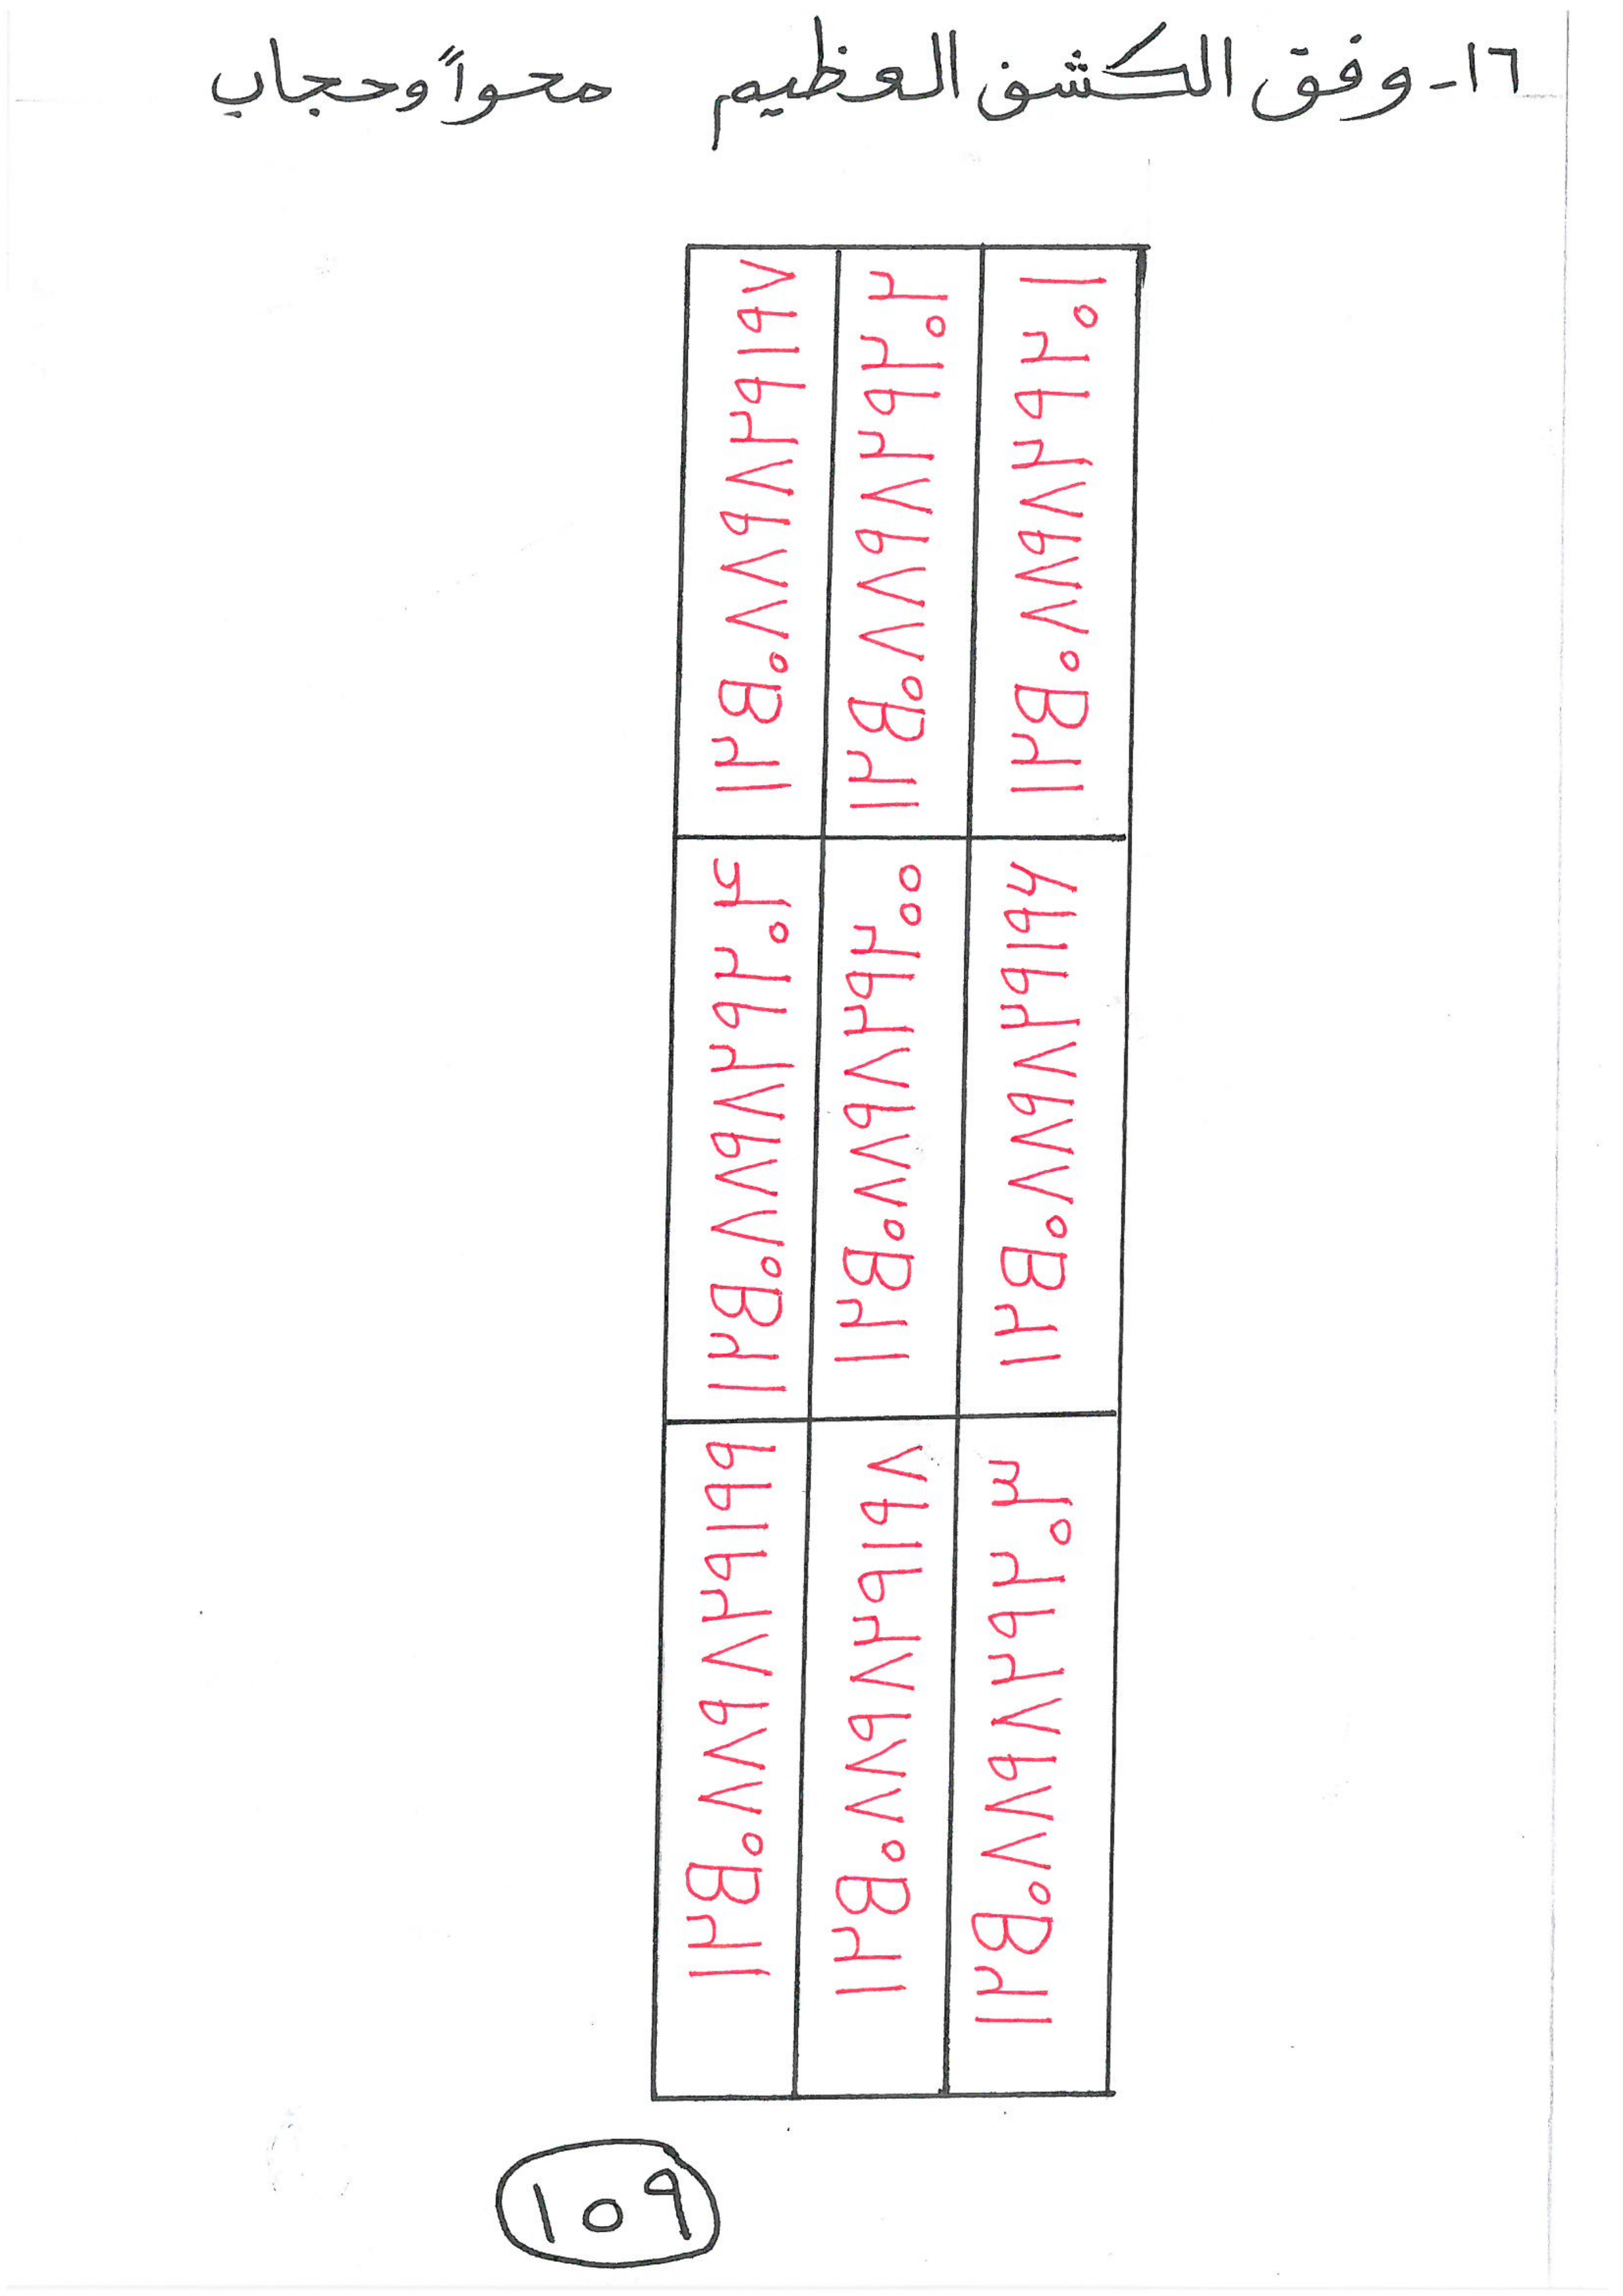 ١٦- وفق الكشف العظيم محواً وحجاب
١٢٥٠٨٨٩٨٢٩١٩٩ ١٢٥٠٨٨٩٨٢٩٢٠٤ ١٢٥٠٨٨٩٨٢٩١٩٧
١٢٥٠٨٨٩٨٢٩١٩٨ ١٢٥٠٨٨٩٨٢٩٢٠٠ ١٢٥٠٨٨٩٨٢٩٢٠٢
١٢٥٠٨٨٩٨٢٩٢٠٣ ١٢٥٠٨٨٩٨٢٩١٩٦ ١٢٥٠٨٨٩٨٢٩٢٠١
١٥٩